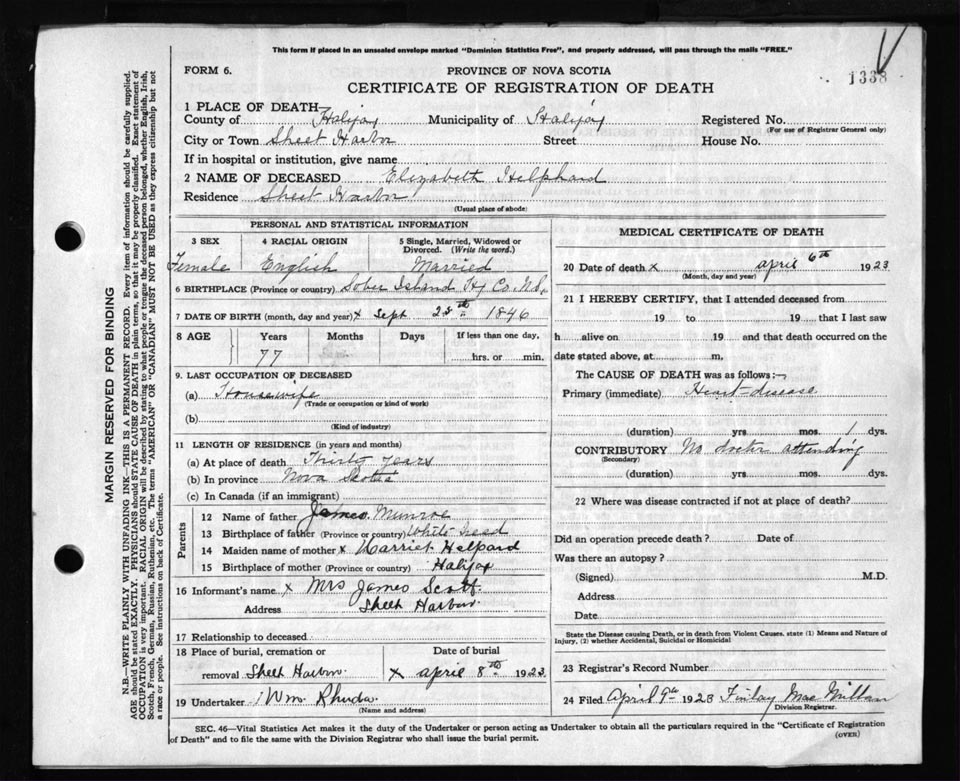 This form if placed in an unsealed envelope marked "Dominion Statistics Free", and properly addressed, will pass through the mails "FREE."
FORM 6.
PROVINCE OF NOVA SCOTIA
1338
CERTIFICATE OF REGISTRATION OF DEATH
1 PLACE OF DEATH
County of Halifax Municipality of Halifax Registered No.
(For use of Registrar General only)
City or Town Sheet Harbor Street House No.
If in hospital or institution, give name
2 NAME OF DECEASED Elizabeth Helphard
Residence Sheet Harbor
(Usual place of abode)
PERSONAL AND STATISTICAL INFORMATION
3 SEX 4 RACIAL ORIGIN 5 Single, Married, Widowed or Divorced. (Write the word.)
Female English Married
6 BIRTHPLACE (Province or country) Sober Island Hx Co. N.S.
7 DATE OF BIRTH (month, day and year) x Sept 28th 1846
8 AGE Years Months Days If less than one day,
77 hrs. or min.
9. LAST OCCUPATION OF DECEASED
(a) Housewife
(Trade or occupation or kind of work)
(b)
(Kind of industry)
11 LENGTH OF RESIDENCE (in years and months)
(a) At place of death Thirty years
(b) In province Nova Scotia
(c) In Canada (if an immigrant)
Parents
12 Name of father James Munroe
13 Birthplace of father (Province or country) White Head
14 Maiden name of mother x Harriet Helpard
15 Birthplace of mother (Province or country) Halifax
16 Informant's name x Mrs James Scott
Address Sheet Harbour
17 Relationship to deceased
18 Place of burial, cremation or Date of burial
removal Sheet Harbor x april 8th 1923
19 Undertaker Wm. Rhuda
(Name and address)
MEDICAL CERTIFICATE OF DEATH
20 Date of death x april 6th 1923
(Month, day and year)
21 I HEREBY CERTIFY, that I attended deceased from
19 to 19 that I last saw
h alive on 19 and that death occurred on the
date stated above, at m.
The CAUSE OF DEATH was as follows:—
Primary (immediate) Heart-disease
(duration) yrs. mos. 1 dys.
CONTRIBUTORY No doctor attending
(Secondary)
(duration) yrs. mos. dys.
22 Where was disease contracted if not at place of death?
Did an operation precede death? Date of
Was there an autopsy?
(Signed) M.D.
Address
Date
State the Disease causing Death, or in death from Violent Causes, state (1) Means and Nature of
Injury, (2) whether Accidental, Suicidal or Homicidal
23 Registrar's Record Number
24 Filed April 9th 1923 Finlay MacMillan
Division Registrar.
SEC. 46—Vital Statistics Act makes it the duty of the Undertaker or person acting as Undertaker to obtain all the particulars required in the "Certificate of Registration
of Death" and to file the same with the Division Registrar who shall issue the burial permit.
(OVER)
MARGIN RESERVED FOR BINDING
N.B.—WRITE PLAINLY WITH UNFADING INK—THIS IS A PERMANENT RECORD. Every item of information should be carefully supplied.
AGE should be stated EXACTLY. PHYSICIANS should STATE CAUSE OF DEATH in plain terms, so that it may be properly classified. Exact statement of
OCCUPATION is very important. RACIAL ORIGIN will be described by stating to what people or tongue the deceased person belonged, whether English, Irish,
Scotch, French, German, Russian, Ruthenian, etc. The terms "AMERICAN" or "CANADIAN" MUST NOT BE USED as they express citizenship but not
a race or people. See instructions on back of Certificate.